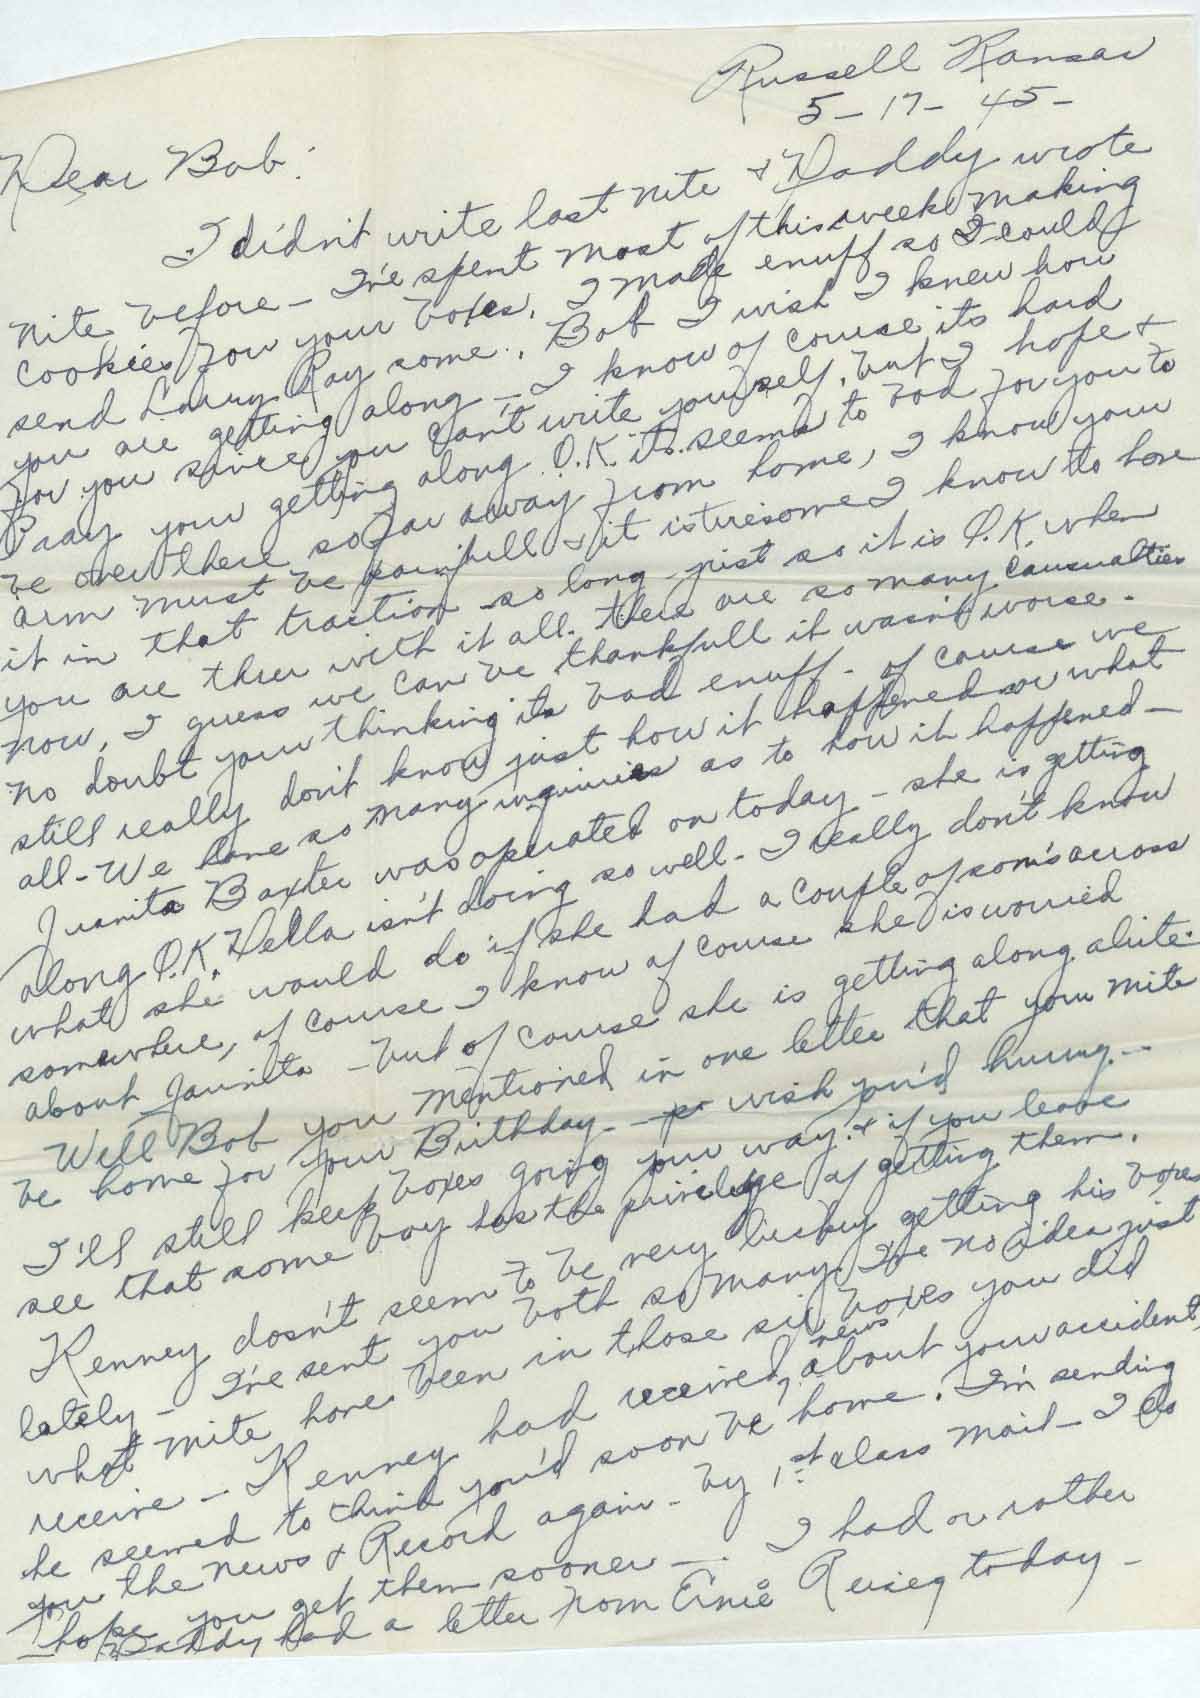 Russell Kansas
5-17-45-
Dear Bob:
I didn't write last nite & Daddy wrote
nite before - I've spent most of this week making
cookies for your boxes. I made enuff so I could
send Larry Ray some. Bob I wish I knew how
you are getting along - I know of course its hard
for you since you can't write yourself, but I hope &
Pray your getting along O.K. it seems to bad for you to
be over there so far away from home, I know your
arm must be painfull & it is tiresome I know to have
it in that traction so long - just so it is O.K. when
you are thru with it all. there are so many causualties
now, I guess we can be thankfull it wasn't worse.
no doubt your thinking its bad enuff - of course we
still really don't know just how it happened or what
all - We have so many inquiries as to how it happened -
Juanita Baxter was operated on today - she is getting
along O.K. Della isn't doing so well - I really don't know
what she would do if she had a couple of som's across
somewhere, of course I know of course she is worried
about Jaunita - but of course she is getting along alrite.
Well Bob you mentioned in one letter that you mite
be home for your Birthday - wish you'd hurry. -
I'll still keep boxes going your way. & if you leave
see that some boy has the privelege of getting them.
Kenney dosn't seem to be very lucky getting his boxes
lately - I've sent you both so many. I've no idea just
what mite have been in those six boxes you did
receive - Kenney had received news about your accident,
he seemed to think you'd soon be home. I'm sending
you the News & Record again - by 1st class mail - I do
hope you get them sooner - . I had or rather
Daddy had a letter from Ernie today -